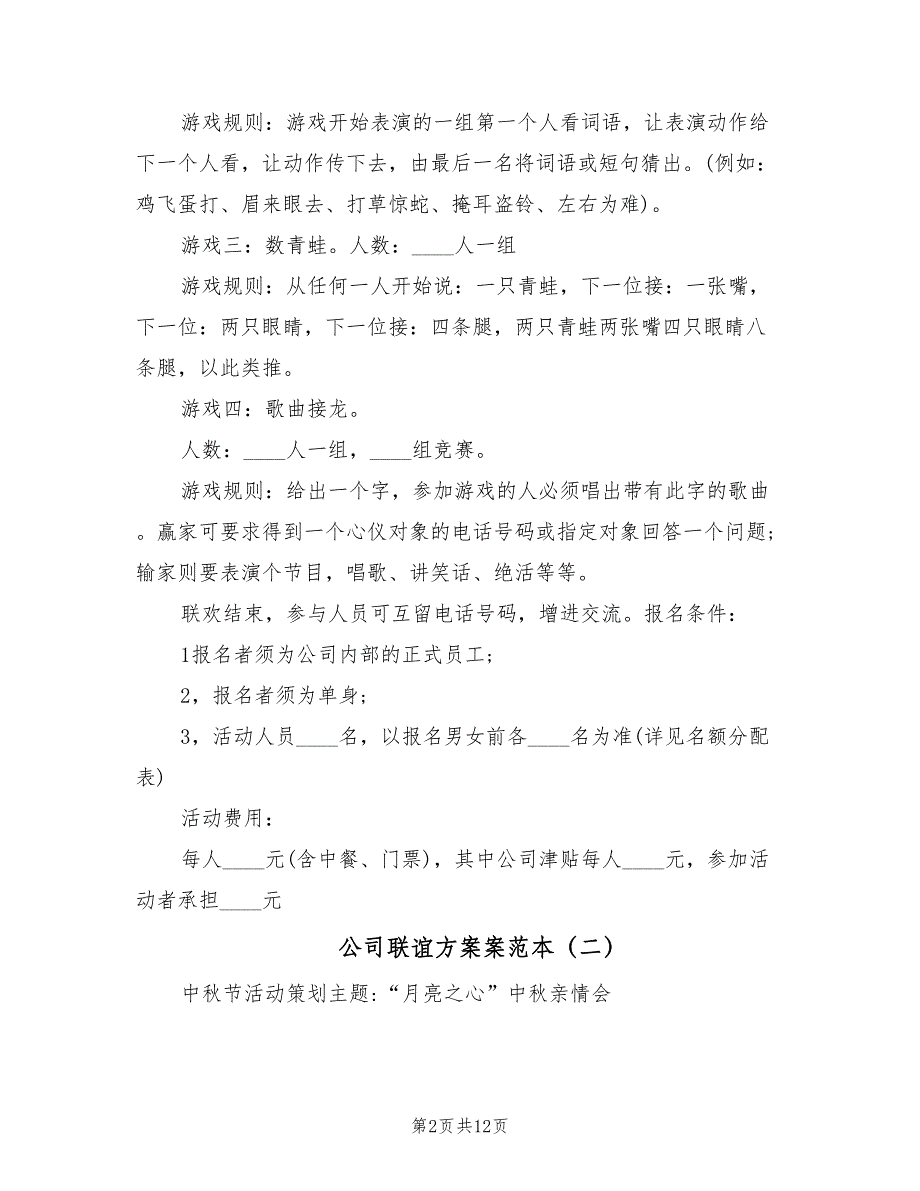 游戏规则：游戏开始表演的一组第一个人看词语，让表演动作给
下一个人看，让动作传下去，由最后一名将词语或短句猜出。(例如：
鸡飞蛋打、眉来眼去、打草惊蛇、掩耳盗铃、左右为难)。
游戏三：数青蛙。人数：____人一组
游戏规则：从任何一人开始说：一只青蛙，下一位接：一张嘴，
下一位：两只眼睛，下一位接：四条腿，两只青蛙两张嘴四只眼睛八
条腿，以此类推。
游戏四：歌曲接龙。
人数：____人一组，____组竞赛。
游戏规则：给出一个字，参加游戏的人必须唱出带有此字的歌曲
。赢家可要求得到一个心仪对象的电话号码或指定对象回答一个问题;
输家则要表演个节目，唱歌、讲笑话、绝活等等。
联欢结束，参与人员可互留电话号码，增进交流。报名条件：
1报名者须为公司内部的正式员工;
2，报名者须为单身;
3，活动人员____名，以报名男女前各____名为准(详见名额分配
表)
活动费用：
每人____元(含中餐、门票)，其中公司津贴每人____元，参加活
动者承担____元
公司联谊方案案范本（二）
中秋节活动策划主题:“月亮之心”中秋亲情会
第2页共12页